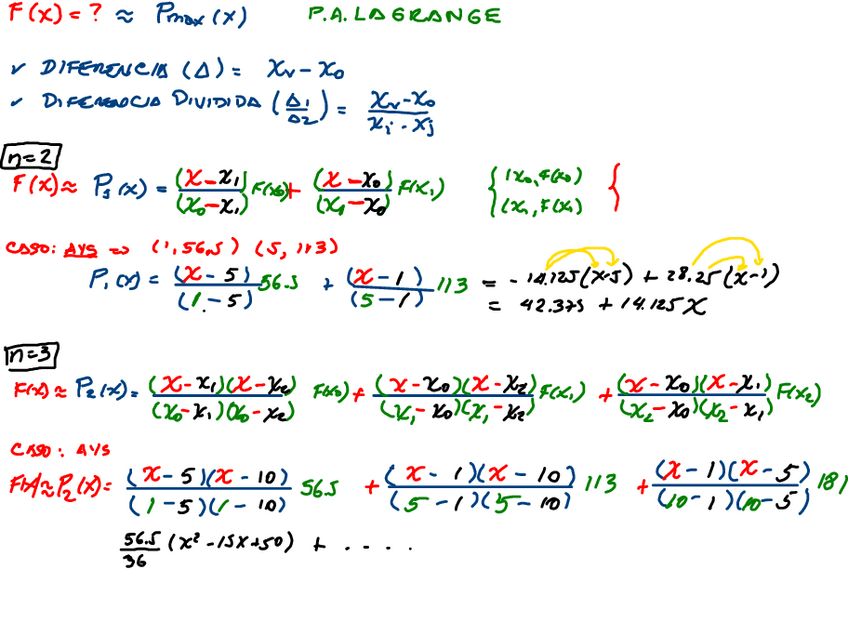 F(x) = ? ≈ Pmax(x) P.A. LAGRANGE
✓ DIFERENCIA (Δ) = Xv - X0
✓ DIFERENCIA DIVIDIDA (Δ1/Δ2) = (Xv - X0)/(Xi - Xj)
n=2
F(x) ≈ P1(x) = (X - X1)/(X0 - X1) F(X0) + (X - X0)/(X1 - X0) F(X1) { (X0, F(X0) {
(X1, F(X1)
CASO: AYS ⇒ (1, 56.5) (5, 113)
P1(x) = (X - 5)/(1 - 5) 56.5 + (X - 1)/(5 - 1) 113 = -14.125(X-5) + 28.25(X-1)
= 42.375 + 14.125X
n=3
F(x) ≈ P2(x) = (X - X1)(X - X2)/(X0 - X1)(X0 - X2) F(X0) + (X - X0)(X - X2)/(X1 - X0)(X1 - X2) F(X1) + (X - X0)(X - X1)/(X2 - X0)(X2 - X1) F(X2)
CASO: AYS
F(x) ≈ P2(x) = (X - 5)(X - 10)/(1 - 5)(1 - 10) 56.5 + (X - 1)(X - 10)/(5 - 1)(5 - 10) 113 + (X - 1)(X - 5)/(10 - 1)(10 - 5) 181
56.5/36 (X² - 15X + 50) + . . . .